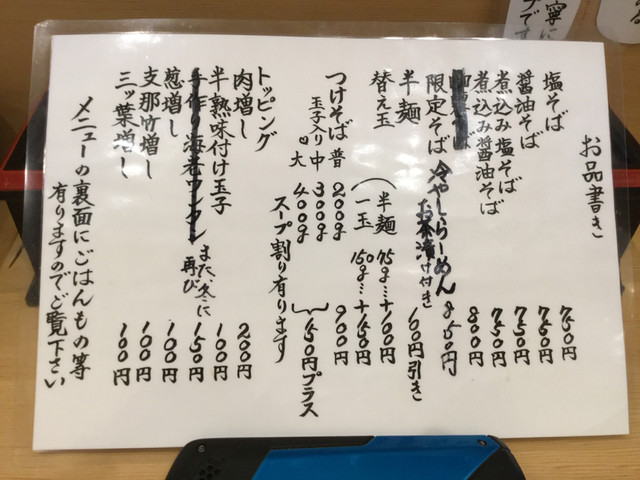 お品書き
塩そば 750円
醤油そば 750円
煮込み塩そば 750円
煮込み醤油そば 750円
800円
限定そば 冷やしらーめん お茶漬け付き 850円
半麺 100円引き
替え玉 (半麺 75g…+100円
一玉 150g…+150円
つけそば 普 200g 900円
玉子入り 中 300g
〃 大 400g } 150円プラス
スープ割り有ります
トッピング
肉増し 200円
半熟味付け玉子 100円
手作り海老ワンタン また、冬に再び 150円
葱増し 100円
支那竹増し 100円
三ッ葉増し 100円
メニューの裏面にごはんもの等
有りますのでご覧下さい